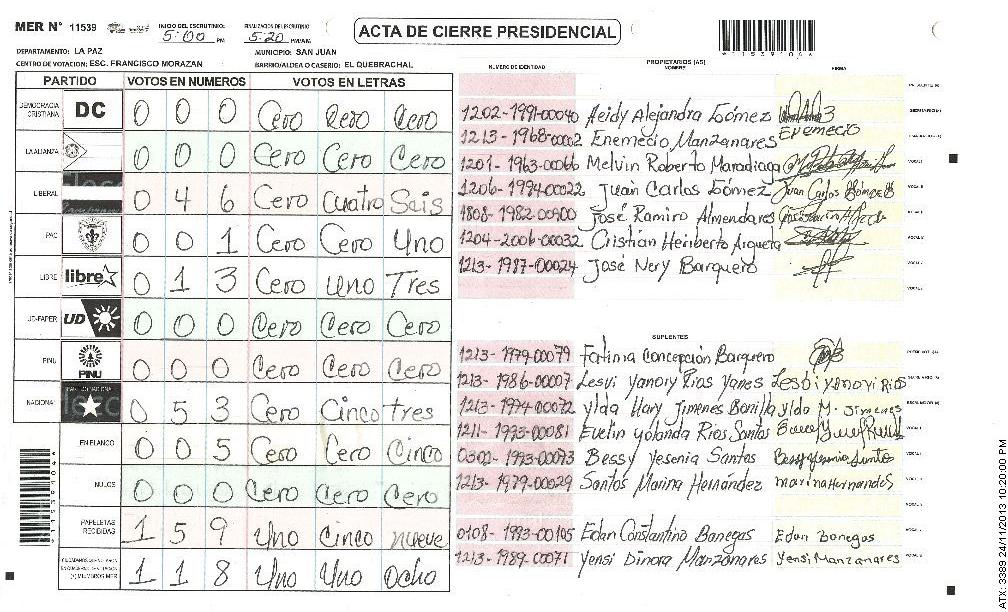 MER N° 11539
INICIO DEL ESCRUTINIO: 5:00 PM
FINALIZACION DEL ESCRUTINIO: 5:20 PM/AM
ACTA DE CIERRE PRESIDENCIAL
DEPARTAMENTO: LA PAZ
MUNICIPIO: SAN JUAN
CENTRO DE VOTACION: ESC. FRANCISCO MORAZAN
BARRIO/ALDEA O CASERIO: EL QUEBRACHAL
PARTIDO VOTOS EN NUMEROS VOTOS EN LETRAS
DEMOCRACIA CRISTIANA DC 0 0 0 Cero Cero Cero
LA ALIANZA 0 0 0 Cero Cero Cero
LIBERAL 0 4 6 Cero Cuatro Seis
PAC 0 0 1 Cero Cero Uno
LIBRE libre 0 1 3 Cero Uno Tres
UD-FAPER UD 0 0 0 Cero Cero Cero
PINU PINU 0 0 0 Cero Cero Cero
NACIONAL 0 5 3 Cero Cinco tres
EN BLANCO 0 0 5 Cero Cero Cinco
NULOS 0 0 0 Cero Cero Cero
PAPELETAS RECIBIDAS 1 5 9 Uno Cinco nueve
(+) MIEMBROS MER 1 1 8 Uno Uno Ocho
NUMERO DE IDENTIDAD PROPIETARIOS (AS) NOMBRE FIRMA
1202-1991-00040 Heidy Alejandra Gómez
1213-1968-0002 Enemecio Manzanares Enemecio
1201-1963-00066 Melvin Roberto Maradiaga
1206-1994-00022 Juan Carlos Gómez Juan Carlos Gómez
1808-1982-00900 José Ramiro Almendares
1204-2006-00032 Cristian Heriberto Argueta
1213-1987-00024 José Nery Barquero
SUPLENTES
1213-1979-00079 Fatima Concepción Barquero
1213-1986-00007 Lesvi Yanory Rios Yanes Lesbi Yanori Rios
1213-1974-00072 Ylda Mary Jimenes Bonilla Ylda M. Jimenes
1211-1993-00081 Evelin Yolanda Rios Santos
0302-1993-00073 Bessy Yesenia Santos Bessy Yesenia Santos
1213-1979-00029 Santos Marina Hernández marina Hernandes
0108-1993-00105 Edan Constantino Banegas Edan Banegas
1213-1989-00071 Yensi Dinora Manzanares Yensi Manzanares
ATX: 3389 24/11/2013 10:20:00 PM